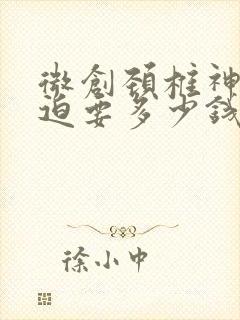 微創頚椎神
迫要多少錢
徐小中